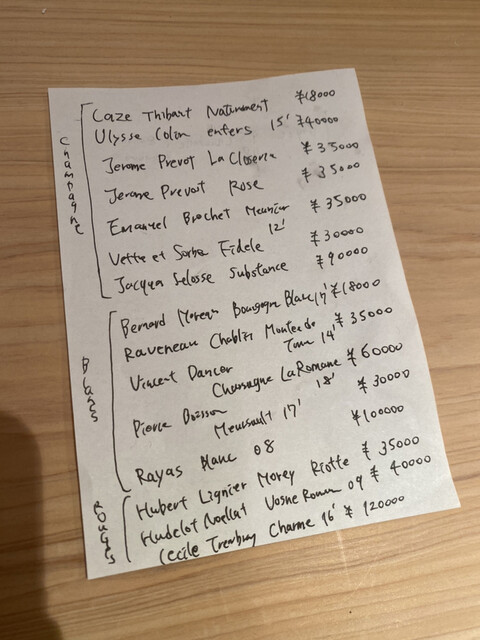 Champagne
Caze Thibaut Naturement ¥18000
Ulysse Colin enfers 15' ¥40000
Jerome Prevot La Closerie ¥35000
Jerome Prevost Rose ¥35000
Emanuel Brochet Meunier ¥35000
12'
Vette et Sorbee Fidele ¥30000
Jacques Selosse Substance ¥90000
Blancs
Bernard Moreau Bourgogne Blanc 17' ¥18000
Raveneau Chablis Montee de ¥35000
Tonn 14'
Vincent Dancer
Chassagne La Romane ¥60000
18'
Pierre Boisson ¥30000
Meursault 17'
Rayas Blanc 08 ¥100000
Rouges
Hubert Lignier Morey Riotte ¥35000
Hudelot Noellat Vosne Roman 09 ¥40000
Cecile Tremblay Charme 16' ¥120000